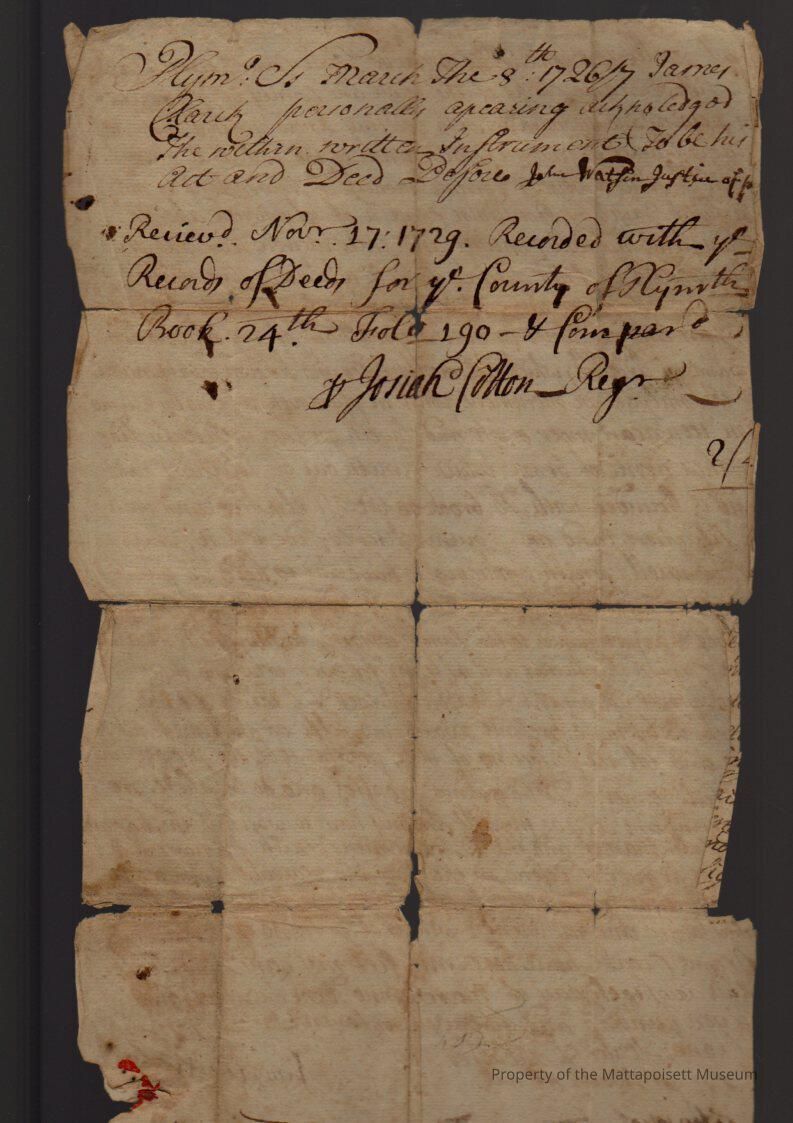 Plymo. Ss March The 8th. 1726/7 James
Clark personally apearing acknoledged
The within written Instrument To be his
act and Deed Before John Watson Justice of p
Reciev'd. Novr. 17: 1729. Recorded with ye
Records of Deeds for ye. County of Plymth
Book. 24th. Folo 190 - & Compar'd
Josiah Cotton Regr
2/
Property of the Mattapoisett Museum